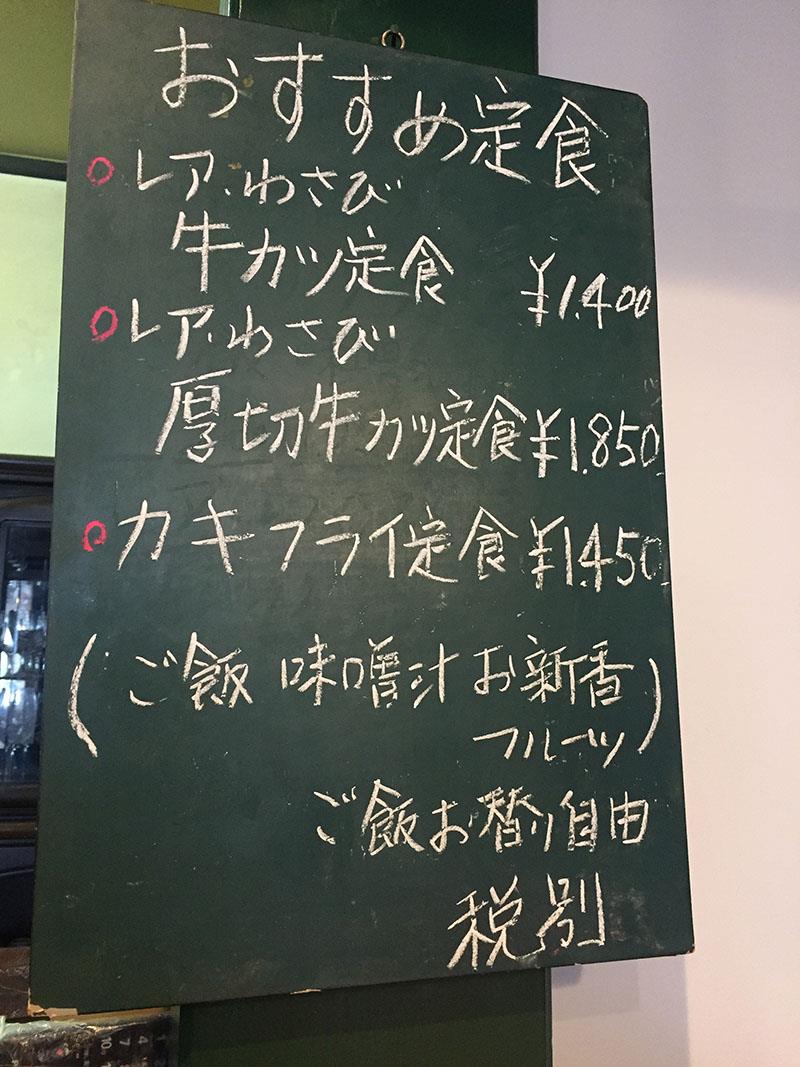 おすすめ定食
レア・わさび
牛カツ定食 ¥1.400
レア・わさび
厚切牛カツ定食 ¥1.850
カキフライ定食 ¥1.450
(ご飯 味噌汁 お新香
フルーツ)
ご飯お替り自由
税別